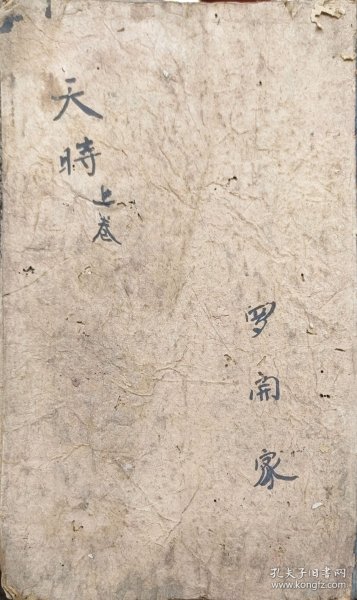 天時上卷
罗開家
孔夫子旧书网
www.kongfz.com